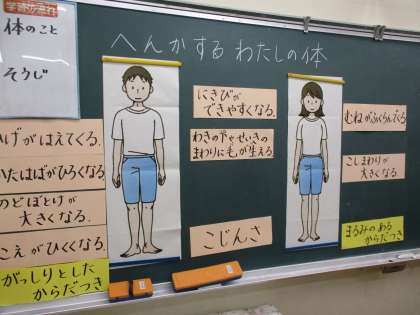 学習の流れ
体のこと
そうじ
へんかする わたしの体
ひげがはえてくる。
かたはばがひろくなる
のどぼとけが
大きくなる。
こえがひくくなる。
がっしりとした
からだつき
にきびが
できやすくなる。
わきの下や せいきの
まわりに毛が生える。
こじんさ
むねがふくらんでくる
こしまわりが
大きくなる。
まるみのある
からだつき